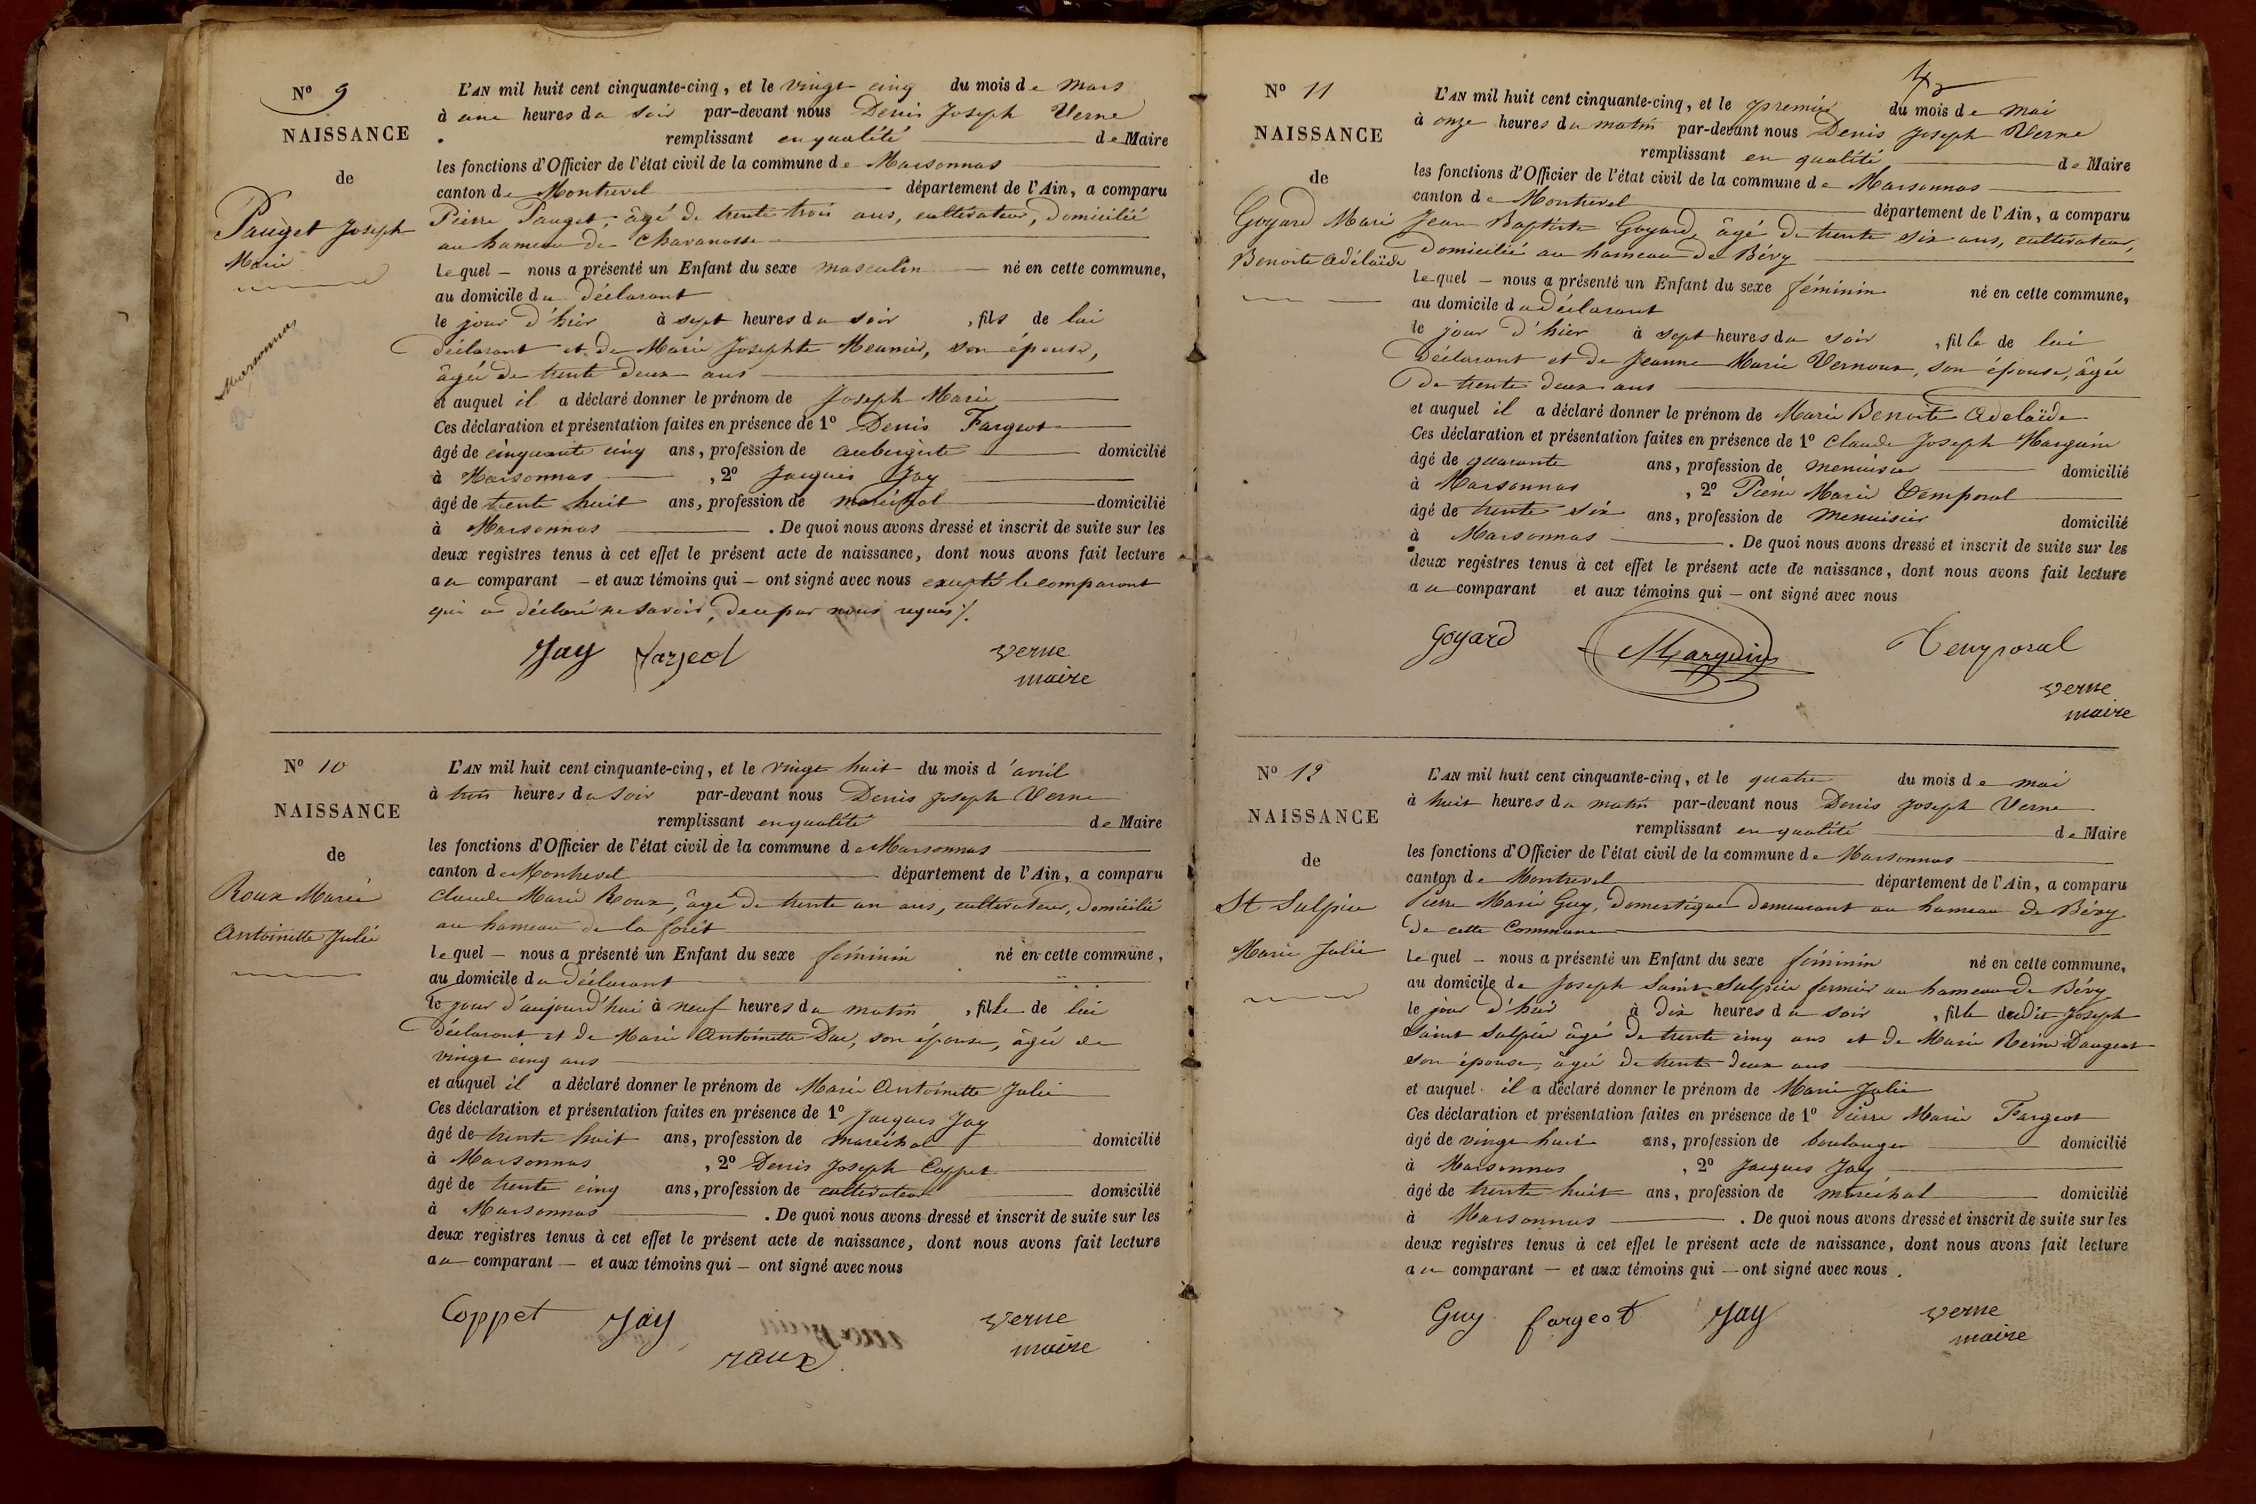 Nº 9
NAISSANCE
de
Pauget Joseph
Marie
Marsonnas
L'AN mil huit cent cinquante-cinq, et le vingt cinq du mois de Mars
à une heures du soir par-devant nous Denis Joseph Verne
remplissant en qualité de Maire
les fonctions d'Officier de l'état civil de la commune de Marsonnas
canton de Montrevel département de l'Ain, a comparu
Pierre Pauget, âgé de trente trois ans, cultivateur, domicilié
au hameau de Chavanosse
lequel – nous a présenté un Enfant du sexe masculin né en cette commune,
au domicile du déclarant
le jour d'hier à sept heures du soir , fils de lui
déclarant et de Marie Josephte Meunier, son épouse,
âgée de trente deux ans
et auquel il a déclaré donner le prénom de Joseph Marie
Ces déclaration et présentation faites en présence de 1º Denis Fargeot
âgé de cinquante cinq ans, profession de aubergiste domicilié
à Marsonnas , 2º Jacques Jay
âgé de trente huit ans, profession de maréchal domicilié
à Marsonnas . De quoi nous avons dressé et inscrit de suite sur les
deux registres tenus à cet effet le présent acte de naissance, dont nous avons fait lecture
au comparant – et aux témoins qui – ont signé avec nous excepté le comparant
qui a déclaré ne savoir, de ce par nous requis /.
Jay Fargeot Verne
maire
Nº 10
NAISSANCE
de
Roux Marie
Antoinette Julie
L'AN mil huit cent cinquante-cinq, et le vingt huit du mois d'avril
à trois heures du soir par-devant nous Denis Joseph Verne
remplissant en qualité de Maire
les fonctions d'Officier de l'état civil de la commune de Marsonnas
canton de Montrevel département de l'Ain, a comparu
Claude Marie Roux, âgé de trente un ans, cultivateur, domicilié
au hameau de la forêt
lequel – nous a présenté un Enfant du sexe féminin né en cette commune,
au domicile du déclarant
le jour d'aujourd'hui à neuf heures du matin , fille de lui
déclarant et de Marie Antoinette Duc, son épouse, âgée de
vingt cinq ans
et auquel il a déclaré donner le prénom de Marie Antoinette Julie
Ces déclaration et présentation faites en présence de 1º Jacques Jay
âgé de trente huit ans, profession de maréchal domicilié
à Marsonnas , 2º Denis Joseph Coppet
âgé de trente cinq ans, profession de cultivateur domicilié
à Marsonnas . De quoi nous avons dressé et inscrit de suite sur les
deux registres tenus à cet effet le présent acte de naissance, dont nous avons fait lecture
au comparant – et aux témoins qui – ont signé avec nous
Coppet Jay Verne
roux maire
Nº 11
NAISSANCE
de
Goyard Marie
Benoite Adélaïde
L'AN mil huit cent cinquante-cinq, et le premier du mois de mai
à onze heures du matin par-devant nous Denis Joseph Verne
remplissant en qualité de Maire
les fonctions d'Officier de l'état civil de la commune de Marsonnas
canton de Montrevel département de l'Ain, a comparu
Jean Baptiste Goyard, âgé de trente six ans, cultivateur,
domicilié au hameau de Bévy
lequel – nous a présenté un Enfant du sexe féminin né en cette commune,
au domicile du déclarant
le jour d'hier à sept heures du soir , fille de lui
déclarant et de Jeanne Marie Vernoux, son épouse, âgée
de trente deux ans
et auquel il a déclaré donner le prénom de Marie Benoite Adelaïde
Ces déclaration et présentation faites en présence de 1º Claude Joseph Marguin
âgé de quarante ans, profession de menuisier domicilié
à Marsonnas , 2º Pierre Marie Temporal
âgé de trente six ans, profession de menuisier domicilié
à Marsonnas . De quoi nous avons dressé et inscrit de suite sur les
deux registres tenus à cet effet le présent acte de naissance, dont nous avons fait lecture
au comparant et aux témoins qui – ont signé avec nous
Goyard Marguin Temporal
Verne
maire
Nº 12
NAISSANCE
de
St Sulpice
Marie Julie
L'AN mil huit cent cinquante-cinq, et le quatre du mois de mai
à huit heures du matin par-devant nous Denis Joseph Verne
remplissant en qualité de Maire
les fonctions d'Officier de l'état civil de la commune de Marsonnas
canton de Montrevel département de l'Ain, a comparu
Pierre Marie Guy, domestique demeurant au hameau de Bévy
de cette Commune
lequel – nous a présenté un Enfant du sexe féminin né en cette commune,
au domicile de Joseph Saint Sulpice fermier au hameau de Bévy
le jour d'hier à dix heures du soir , fille dudit Joseph
Saint Sulpice âgé de trente cinq ans et de Marie Reine Daugeat
son épouse, âgée de trente deux ans
et auquel il a déclaré donner le prénom de Marie Julie
Ces déclaration et présentation faites en présence de 1º Pierre Marie Fargeot
âgé de vingt huit ans, profession de boulanger domicilié
à Marsonnas , 2º Jacques Jay
âgé de trente huit ans, profession de maréchal domicilié
à Marsonnas . De quoi nous avons dressé et inscrit de suite sur les
deux registres tenus à cet effet le présent acte de naissance, dont nous avons fait lecture
au comparant – et aux témoins qui – ont signé avec nous .
Guy fargeot Jay Verne
maire